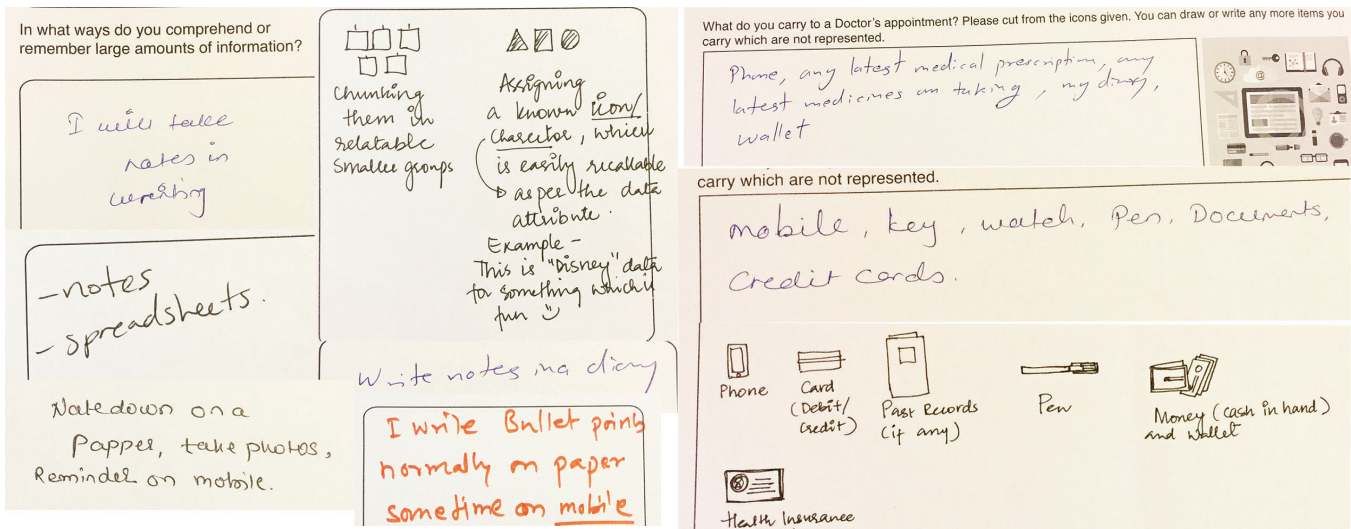 In what ways do you comprehend or
remember large amounts of information?
I will take
notes in
wereting
- notes
- spreadsheets.
Natedown on a
Papper, take photos,
Reminder on mobile.
Chunking
them in
relatable
smaller groups
Assigning
a known icon/
character, which
is easily recallable
as per the data
attribute.
Example -
This is "Disney" data
for something which is
fun
Write notes in a diary
I write Bullet points
normally on paper
sometime on mobile
What do you carry to a Doctor's appointment? Please cut from the icons given. You can draw or write any more items you
carry which are not represented.
Phone, any latest medical prescription, any
latest medicines am taking, my diary,
wallet
carry which are not represented.
mobile, key, watch, Pen, Documents,
Credit cards.
Phone
Card
(Debit/
Credit)
Past Records
(if any)
Pen
Money (cash in hand)
and wallet
Health Insurance